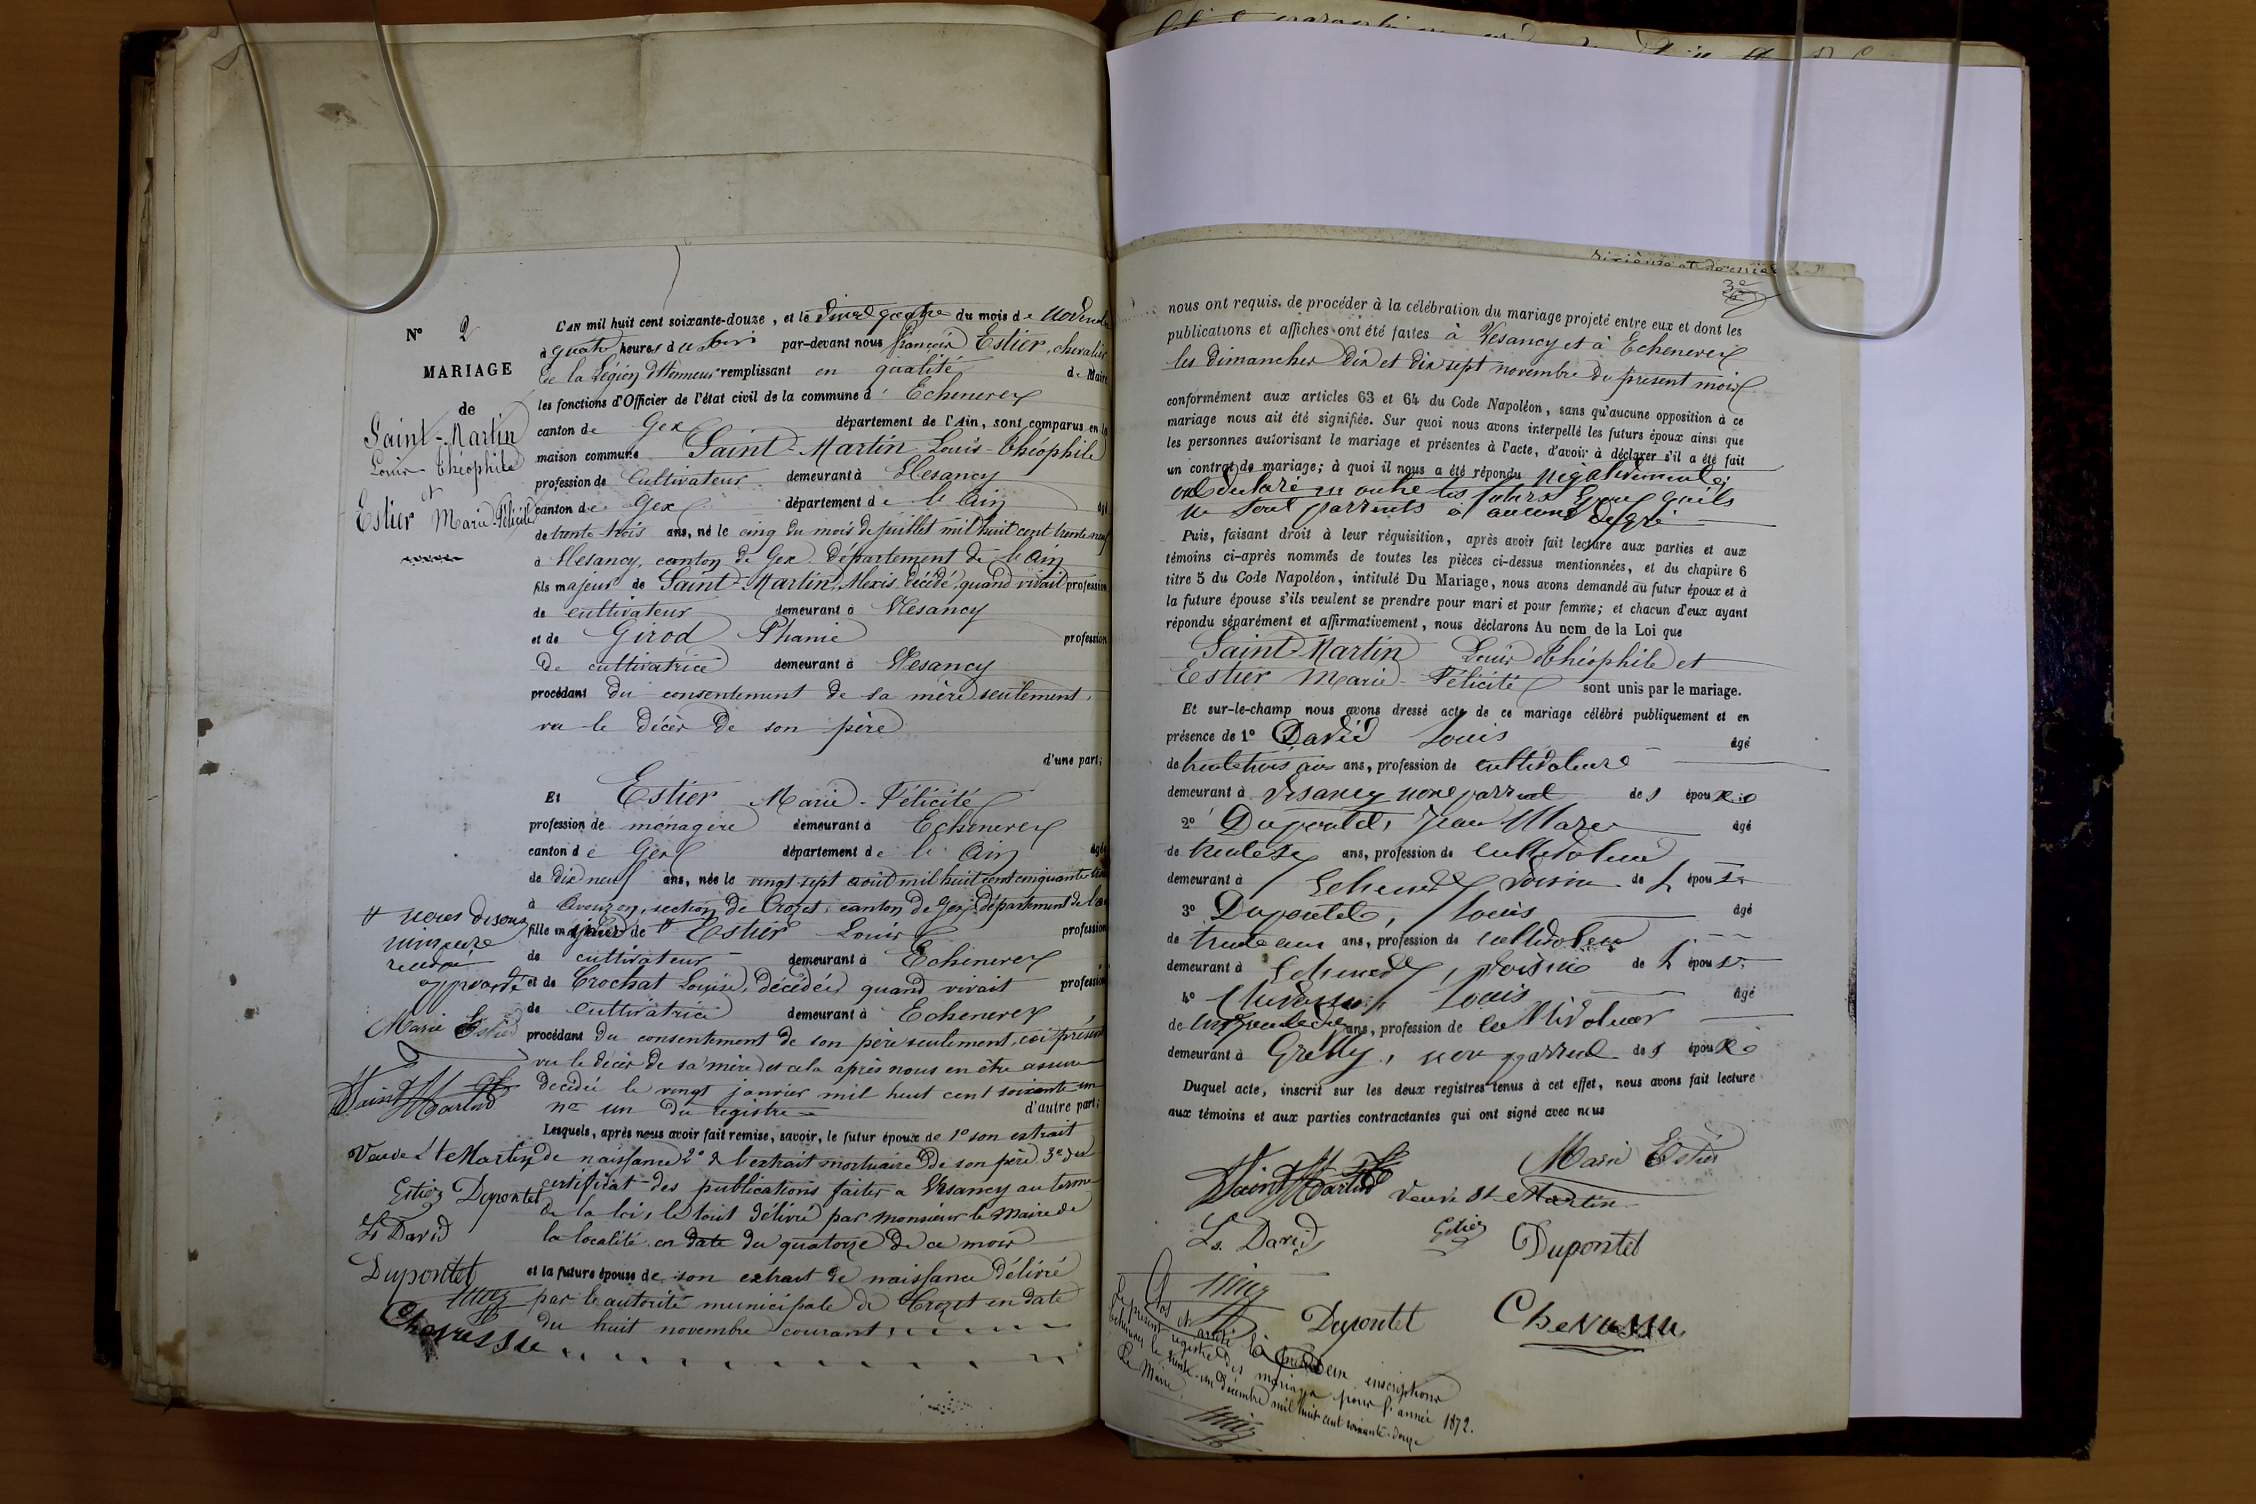 N° 2
MARIAGE
de
Saint-Martin
Louis Théophile
et
Estier Marie-Félicité
L'AN mil huit cent soixante-douze, et le vingt quatre du mois de novembre
à quatre heures du soir par-devant nous françois Estier, chevalier
de la Légion d'Honneur remplissant en qualité de Maire
les fonctions d'Officier de l'état civil de la commune d' Echenevex
canton de Gex département de l'Ain, sont comparus en la
maison commune Saint-Martin Louis-Théophile
profession de Cultivateur demeurant à Vesancy
canton de Gex département de l'Ain âgé
de trente trois ans, né le cinq du mois de juillet mil huit cent trente neuf
à Vesancy, canton de Gex Département de l'ain
fils majeur de Saint-Martin Alexis décédé, quand vivait profession
de cultivateur demeurant à Vesancy
et de Girod Phanie profession
de cultivatrice demeurant à Vesancy
procédant du consentement de sa mère seulement,
vu le décès de son père
d'une part;
Et Estier Marie-Félicité
profession de ménagère demeurant à Echenevex
canton de Gex département de l'Ain âgée
de dix neuf ans, née le vingt-sept août mil huit cent cinquante trois
à Avouzon, section de Crozet, canton de Gex département de l'ain
fille majeure de Estier Louis profession
de cultivateur demeurant à Echenevex
et de Crochat Louise, décédée, quand vivait profession
de cultivatrice demeurant à Echenevex
procédant du consentement de son père seulement, ici présent
vu le décès de sa mère et cela après nous en être assuré
décédée le vingt janvier mil huit cent soixante-un
n° un du registre d'autre part;
Lesquels, après nous avoir fait remise, savoir, le futur époux de 1° son extrait
de naissance 2° de l'extrait mortuaire de son père 3° des
certificat des publications faites a Vesancy au terme
de la loi, le tout délivré par monsieur le Maire de
la localité en date du quatorze de ce mois
et la future épouse de son extrait de naissance délivré
par l'autorité municipale de Crozet en date
du huit novembre courant
# nous disons
mineure
approuvé
Marie Estier
Saint Martin
Veuve St Martin
Estier Dupontet
Ls David
Dupontet
Chevassu
3e
nous ont requis de procéder à la célébration du mariage projeté entre eux et dont les
publications et affiches ont été faites à Vesancy et à Echenevex
les dimanches dix et dix sept novembre du présent mois
conformément aux articles 63 et 64 du Code Napoléon, sans qu'aucune opposition à ce
mariage nous ait été signifiée. Sur quoi nous avons interpellé les futurs époux ainsi que
les personnes autorisant le mariage et présentes à l'acte, d'avoir à déclarer s'il a été fait
un contrat de mariage; à quoi il nous a été répondu négativement;
ont déclaré en outre les futurs Epoux qu'ils
ne sont parrents à aucun degré
Puis, faisant droit à leur réquisition, après avoir fait lecture aux parties et aux
témoins ci-après nommés de toutes les pièces ci-dessus mentionnées, et du chapitre 6
titre 5 du Code Napoléon, intitulé Du Mariage, nous avons demandé au futur époux et à
la future épouse s'ils veulent se prendre pour mari et pour femme; et chacun d'eux ayant
répondu séparément et affirmativement, nous déclarons Au nom de la Loi que
Saint-Martin Louis Théophile et
Estier Marie-Félicité sont unis par le mariage.
Et sur-le-champ nous avons dressé acte de ce mariage célébré publiquement et en
présence de 1° David Louis âgé
de trente trois ans ans, profession de cultivateur
demeurant à Vesancy non parrent des époux
2° Dupontet, Jean Marc âgé
de trente six ans, profession de cultivateur
demeurant à Echenevex voisin de l'époux
3° Dupontet, Louis âgé
de trente ans, profession de cultivateur
demeurant à Echenevex, voisin de l'époux
4° Chevassu, Louis âgé
de ans, profession de cultivateur
demeurant à Grilly, non parrent des époux
Duquel acte, inscrit sur les deux registres tenus à cet effet, nous avons fait lecture
aux témoins et aux parties contractantes qui ont signé avec nous
Marie Estier
Saint Martin Veuve St Martin
Ls. David Estier Dupontet
Dupontet Chevassu
Clos et arrêté à deux inscriptions
le présent registre des mariages pour l'année 1872.
Echenevex le trente-un décembre mil huit cent soixante-douze
Le Maire